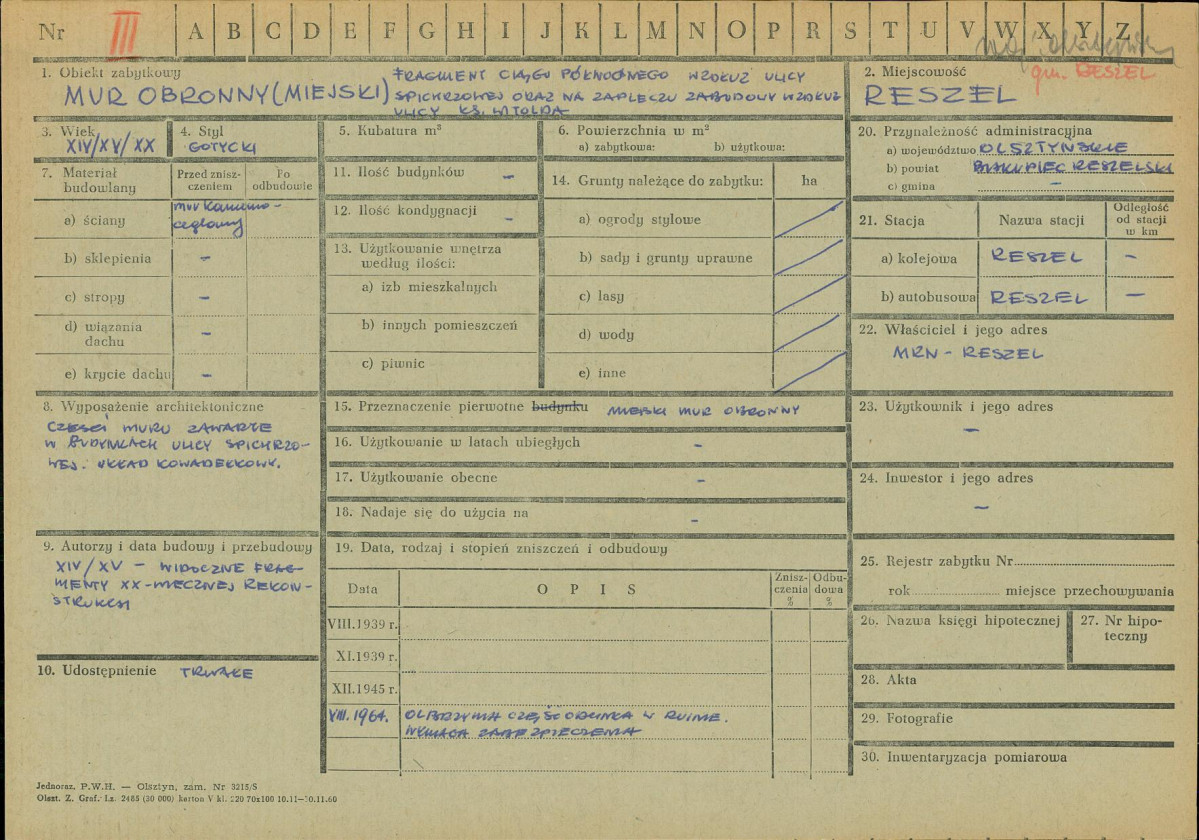 Nr III A B C D E F G H I J K L M N O P R S T U V W X Y Z
gm. RESZEL
1. Obiekt zabytkowy
MUR OBRONNY (MIEJSKI)
FRAGMENT CIĄGU PÓŁNOCNEGO WZDŁUŻ ULICY
SPICHRZOWEJ ORAZ NA ZAPLECZU ZABUDOWY WZDŁUŻ
ULICY KS. WITOLDA
2. Miejscowość
RESZEL
3. Wiek
XIV/XV/XX
4. Styl
GOTYCKI
5. Kubatura m³
6. Powierzchnia w m²
a) zabytkowa: b) użytkowa:
7. Materiał
budowlany
Przed znisz-
czeniem
Po
odbudowie
a) ściany
mur kamienno-
ceglany
b) sklepienia –
c) stropy –
d) wiązania
dachu –
e) krycie dachu –
8. Wyposażenie architektoniczne
CZĘŚCI MURU ZAWARTE
W BUDYNKACH ULICY SPICHRZO-
WEJ. UKŁAD KOWADEŁKOWY.
9. Autorzy i data budowy i przebudowy
XIV/XV – WIDOCZNE FRAG-
MENTY XX-WIECZNEJ REKON-
STRUKCJI
10. Udostępnienie TRWAŁE
11. Ilość budynków –
12. Ilość kondygnacji –
13. Użytkowanie wnętrza
według ilości:
a) izb mieszkalnych
b) innych pomieszczeń
c) piwnic
14. Grunty należące do zabytku: ha
a) ogrody stylowe
b) sady i grunty uprawne
c) lasy
d) wody
e) inne
15. Przeznaczenie pierwotne budynku MIEJSKI MUR OBRONNY
16. Użytkowanie w latach ubiegłych –
17. Użytkowanie obecne –
18. Nadaje się do użycia na –
19. Data, rodzaj i stopień zniszczeń i odbudowy
Data
O P I S
Znisz-
czenia
%
Odbu-
dowa
%
VIII.1939 r.
XI.1939 r.
XII.1945 r.
VIII.1964. OLBRZYMIA CZĘŚĆ ODCINKA W RUINIE.
WYMAGA ZABEZPIECZENIA
20. Przynależność administracyjna
a) województwo OLSZTYŃSKIE
b) powiat BISKUPIEC RESZELSKI
c) gmina –
21. Stacja
Nazwa stacji
Odległość
od stacji
w km
a) kolejowa RESZEL –
b) autobusowa RESZEL –
22. Właściciel i jego adres
MRN - RESZEL
23. Użytkownik i jego adres
–
24. Inwestor i jego adres
–
25. Rejestr zabytku Nr
rok miejsce przechowywania
26. Nazwa księgi hipotecznej
27. Nr hipo-
teczny
28. Akta
29. Fotografie
30. Inwentaryzacja pomiarowa
Jednoraz. P.W.H. — Olsztyn, zam. Nr 3215/S
Olszt. Z. Graf. Lz. 2485 (30 000) karton V kl. 220 70x100 10.11—30.11.60